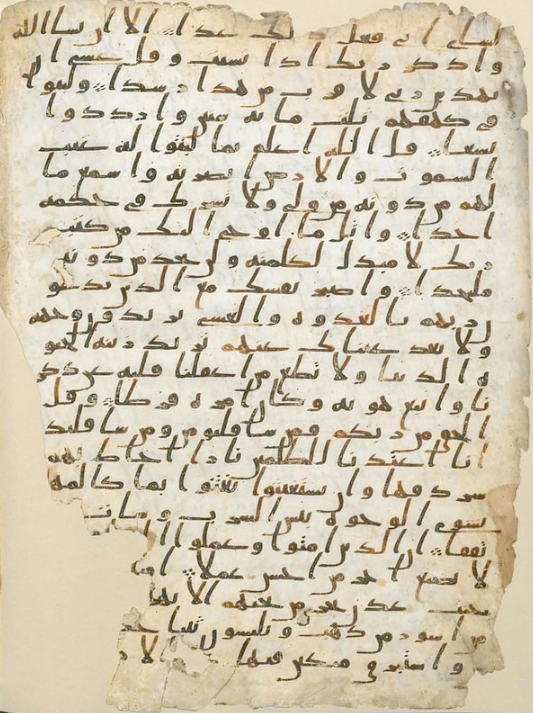 لشاي اني فعل ذلك غدا الا ان يشا الله
واذكر ربك اذا نسيت وقل عسى ان
يهدين ربي لاقرب من هذا رشدا ولبثوا
في كهفهم ثلث مائه سنين وازددوا
تسعا قل الله اعلم بما لبثوا له غيب
السموت والارض ابصر به واسمع ما
لهم من دونه من ولي ولا يشرك في حكمه
احدا واتل ما اوحي اليك من كتب
ربك لا مبدل لكلمته ولن تجد من دونه
ملتحدا واصبر نفسك مع الذين يدعو
ن ربهم بالغدوه والعشي يريدون وجهه
ولا تعد عيناك عنهم تريد زينه الحيو
ه الدنيا ولا تطع من اغفلنا قلبه عن ذكر
نا واتبع هويه وكان امره فرطا وقل
الحق من ربكم فمن شا فليومن ومن شا فليكـ
انا اعتدنا للظلمين نارا احاط بهم
سردقها وان يستغيثوا يغثوا بما كالمه
يشوي الوجوه بئس الشرب وسات
تفقا ان الذين امنوا وعملوا ا
لا نضيع اجر من احسن عملا او
جنت عدن تجري من تحتهم الانها
من اسور من ذهب ويلبسون ثيابا خـ
واستبرق متكين فيها الا